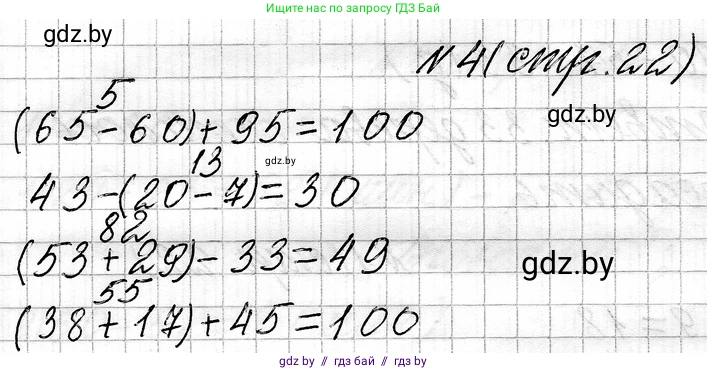 Ищите нас по запросу ГДЗ Бай
gdz.by
№4(стр.22)
5
(65-60)+95=100
gdz.by
13
gdz.by
43-(20-7)=30
82
(53+29)-33=49
gdz.by
55
(38+17)+45=100
gdz.by // гдз бай // гдз by